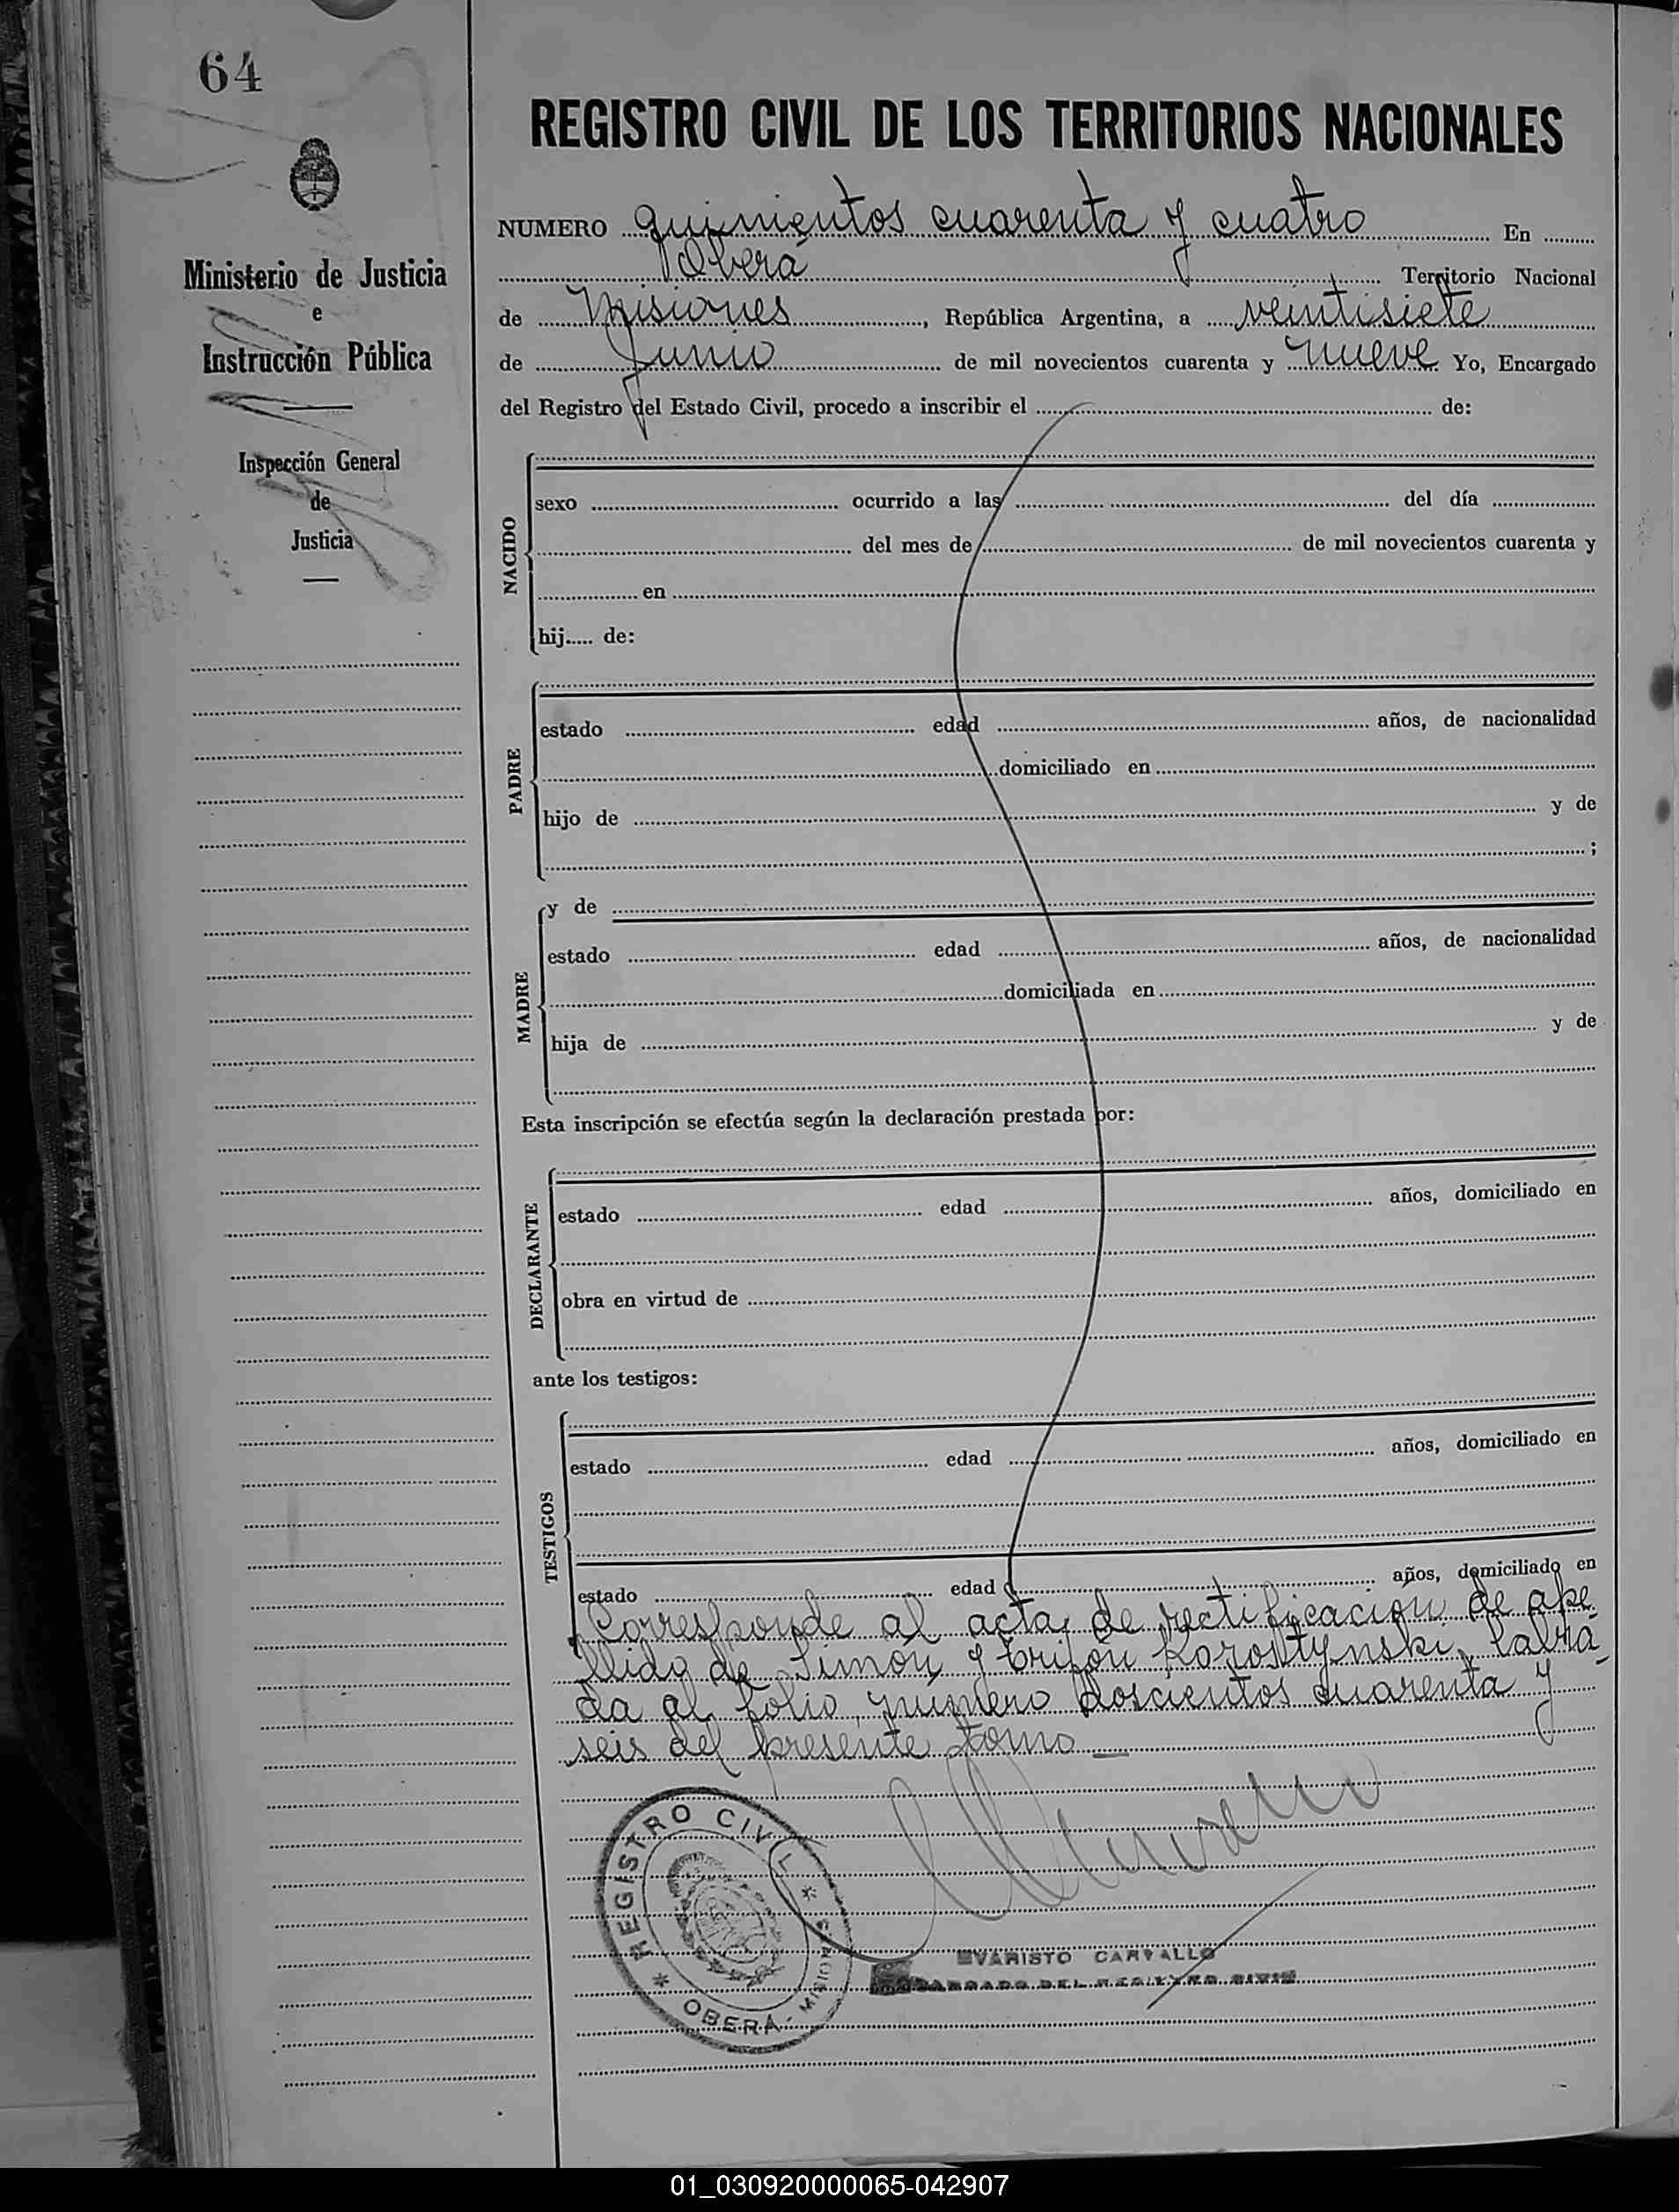 64
Ministerio de Justicia
e
Instrucción Pública
Inspección General
de
Justicia
REGISTRO CIVIL DE LOS TERRITORIOS NACIONALES
NUMERO quinientos cuarenta y cuatro En
Oberá Territorio Nacional
de Misiones, República Argentina, a veintisiete
de Junio de mil novecientos cuarenta y nueve Yo, Encargado
del Registro del Estado Civil, procedo a inscribir el de:
NACIDO
sexo ocurrido a las del día
del mes de de mil novecientos cuarenta y
en
hij..... de:
PADRE
estado edad años, de nacionalidad
domiciliado en
hijo de y de
;
MADRE
y de
estado edad años, de nacionalidad
domiciliada en
hija de y de
Esta inscripción se efectúa según la declaración prestada por:
DECLARANTE
estado edad años, domiciliado en
obra en virtud de
ante los testigos:
TESTIGOS
estado edad años, domiciliado en
estado edad años, domiciliado en
Corresponde al acta de rectificación de ape
llido de Simón y Trifón Korostynski, labra
da al folio número doscientos cuarenta y
seis del presente tomo
REGISTRO CIVIL
OBERÁ - MISIONES
EVARISTO CARVALLO
ENCARGADO DEL REGISTRO CIVIL
01_030920000065-042907